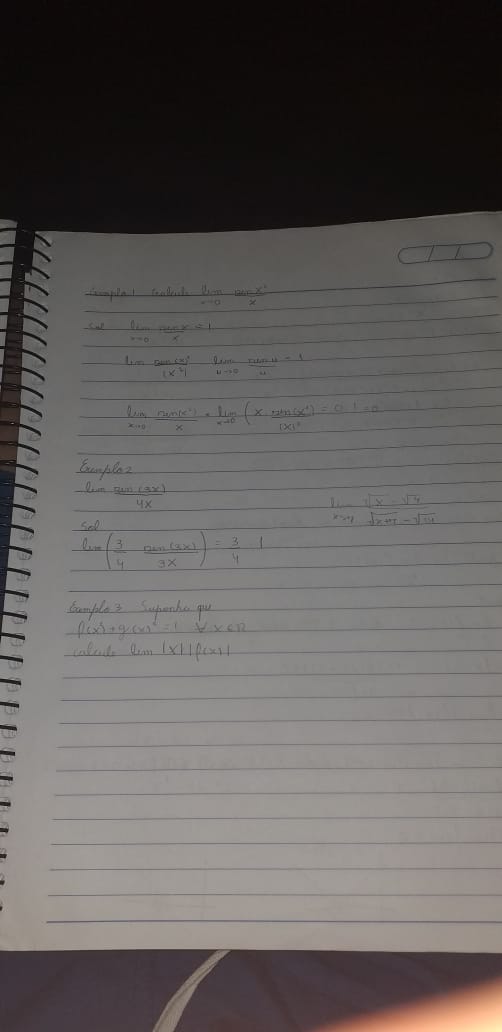 Exemplo 1 Calcule lim x→0 sen x² / x
Sol lim x→0 sen x / x = 1
lim sen(x)² / (x²) lim u→0 sen u / u = 1
lim x→0 sen(x²) / x = lim x→0 (x · sen(x²) / (x)²) = 0 · 1 = 0
Exemplo 2
lim sen(3x) / 4x
Sol
lim (3/4 sen(3x) / 3x) = 3/4 · 1
lim x→4 √x - √4 / √x+ - √14
Exemplo 3 Suponha que
f(x)²+g(x)²=1 ∀ x ∈ R
calcule lim |x||f(x)|